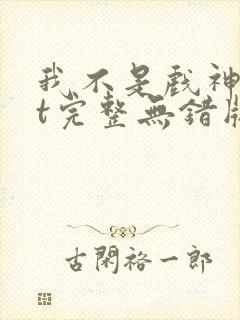 我不是戲神
t完整無錯版
古閑裕一郎